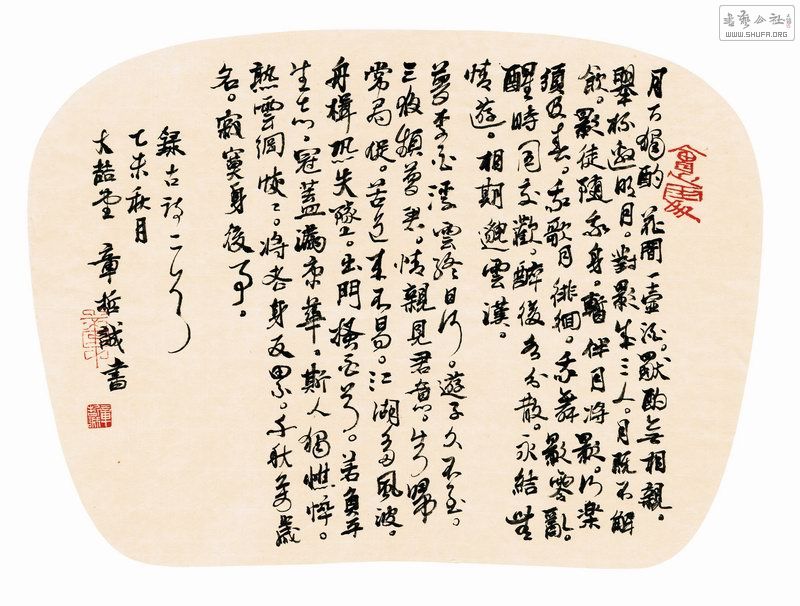 月下獨酌 花間一壺酒。獨酌無相親。
舉杯邀明月。對影成三人。月既不解
飲。影徒隨我身。暫伴月將影。行樂
須及春。我歌月徘徊。我舞影零亂。
醒時同交歡。醉後各分散。永結無
情遊。相期邈雲漢。
夢李白 浮雲終日行。遊子久不至。
三夜頻夢君。情親見君意。告歸
常局促。苦道來不易。江湖多風波。
舟楫恐失墜。出門搔白首。若負平
生志。冠蓋滿京華。斯人獨憔悴。
孰雲網恢〻。將老身反累。千秋萬歲
名。寂寞身後事。
錄古詩二首
乙未秋月
大喆堂 章哲誠書
書藝公社
WWW.SHUFA.ORG